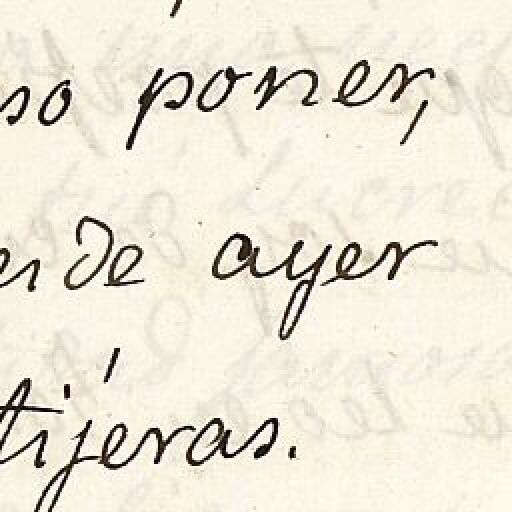 so poner,
de ayer
tijeras.